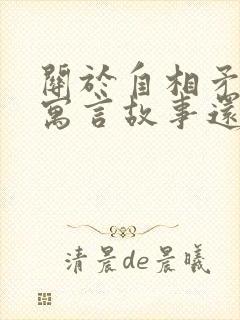 關於自相矛
寓言故事還
清晨de晨曦